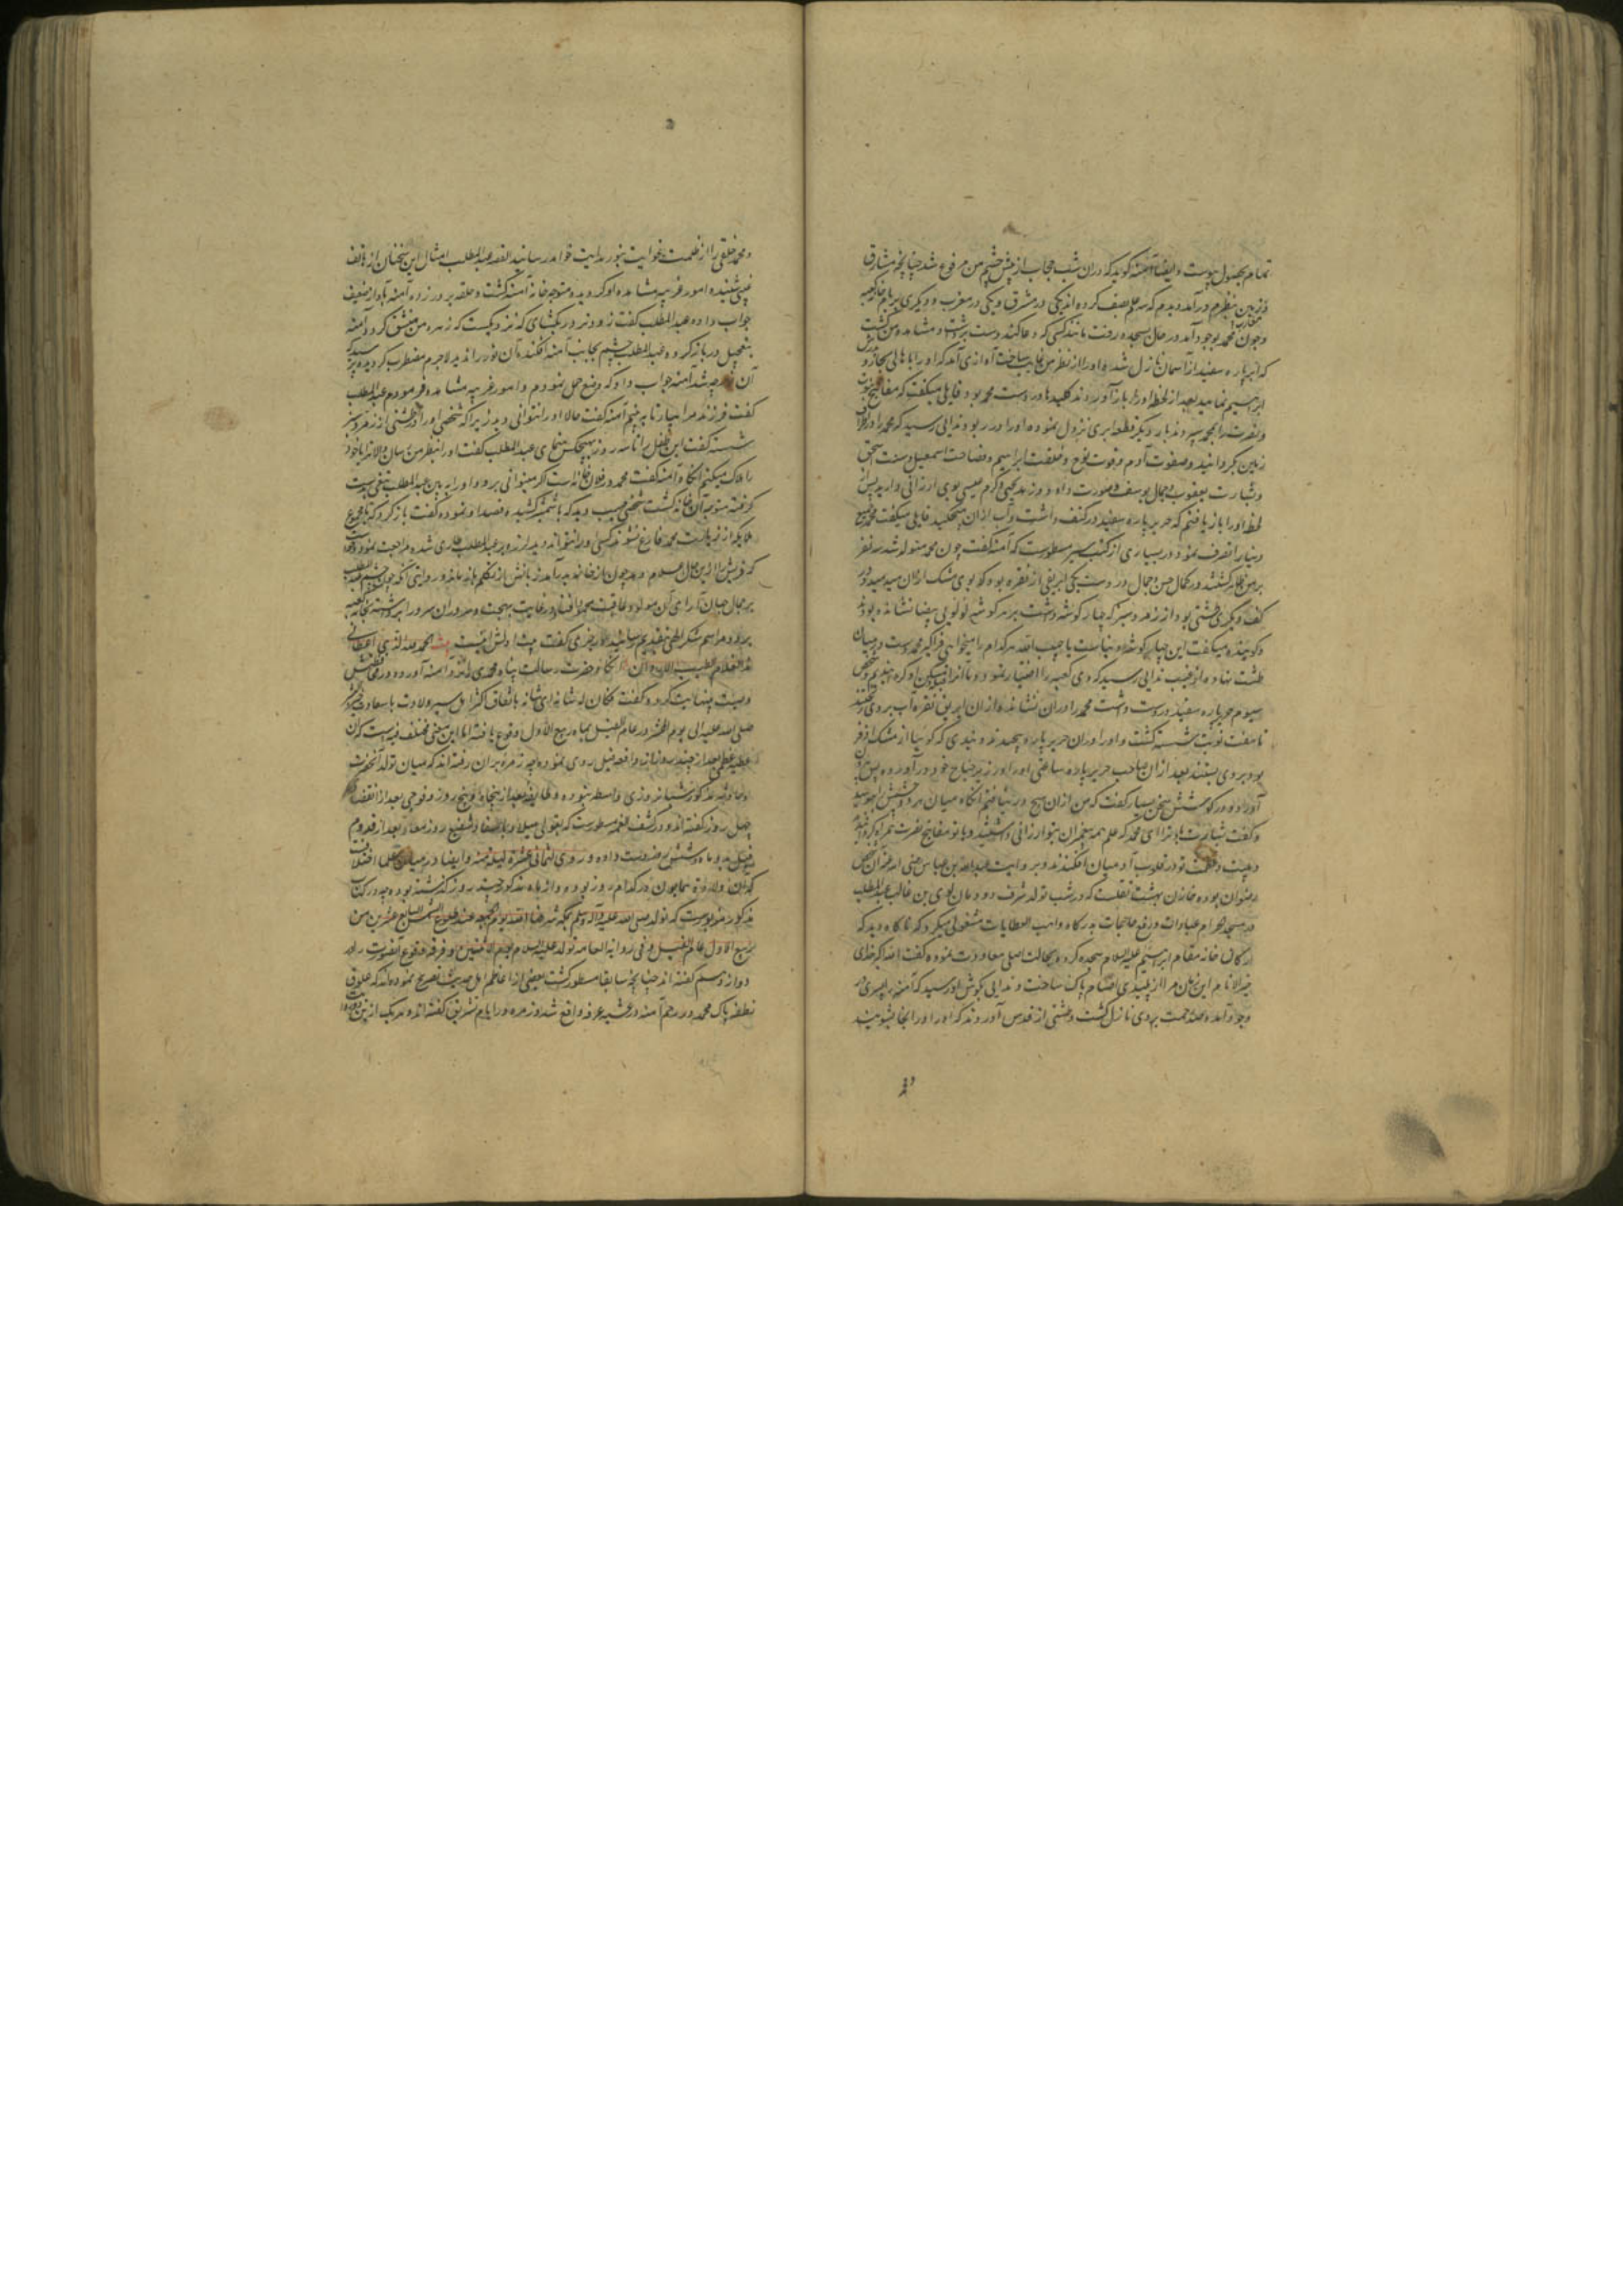 تمام بحصول پیوست و ایضا آمنه گوید که دران شب حجاب از پیش چشم من مرفوع شد چنانچه مشارق
زمین بنظرم درآمد و دیدم که سه علم نصب کرده اند یکی در مشرق و یکی در مغرب و دیگری بر بام خانه کعبه
و چون محمد بوجود آمد در حال بسجده رفت مانند کسی که دعا کند دست برداشت و مشاهده من گشت
که ابر پاره سفید از آسمان نازل شده او را از نظر من غایب ساخت آوازی آمد که او را
ابراهیم نمایید بعد از لحظه او را باز آوردند کلیدها در دست محمد بود و قایلی میگفت که مفاتیح نبوت
و نصرت را بمحمد سپردند بار دیگر قطعه ابری نزول نموده او را در ربود و ندایی رسید که محمد را در اطراف
زمین بگردانید و صفوت آدم و قوت نوح و خلقت ابراهیم و فصاحت اسمعیل و سنت اسحق
و بشارت یعقوب و جمال یوسف و صورت داود و زهد یحیی و کرم عیسی بوی ارزانی دارید پس از
لحظه او را باز یافتم که حریر پاره سفید در کف داشت و آب از ان میچکید قایلی میگفت محمد جمیع
دنیا را تصرف نمود و در بسیاری از کتب سیر مسطورست که آمنه گفت چون محمد متولد شد سه نفر
بر من ظاهر گشتند در کمال حسن و جمال در دست یکی ابریقی از نقره بود که بوی مشک از ان میدمید و در
کف دیگری طشتی بود از زمرد سبز که چهار گوشه داشت بر هر گوشه لولوئی بیضا نشانده بودند
و گوینده میگفت این چهار گوشه دنیاست یا حبیب الله هر کدام را میخواهی فراگیر محمد دست در میان
طشت نهاده از غیب ندایی رسید که وی کعبه را اختیار نمود و ما آنرا مسکن او گردانیدیم و شخص
سیوم حریر پاره سفید در دست داشت محمد را دران نشاندند و از ان ابریق نقره آب بر وی ریختند
تا هفت نوبت شسته گشت و او را دران حریر پاره پیچیدند و بندی که گوییا از مشک اذفر
بود بر وی بستند بعد از ان صاحب حریر پاره ساعتی او را در زیر جناح خود درآورده پس بیرون
آورد و در گوشش سخن بسیار گفت که من از ان هیچ در نیافتم آنگاه میان هر دو چشمش ببوسید
و گفت بشارت باد ترا ای محمد که علم همه پیغمبران بتو ارزانی داشتند و با تو مفاتیح نصرت همراه کردند
و هیبت و عظمت تو در قلوب آدمیان افکندند و بروایت عبدالله بن عباس رضی الله عنه آن شخص
رضوان بوده خازن بهشت نقلست که در شب تولد شرف دودمان لوی بن غالب عبدالمطلب
در مسجد حرام بعبادات و رفع حاجات بدرگاه واهب العطایات مشغولی میکرد که ناگاه دید که
ارکان خانه مقام ابراهیم علیه السلام سجده کرده بحالت اصلی معاودت نموده گفت الله اکبر خدای
خیر الانام این زمان مرا از پلیدی اصنام پاک ساخت و ندایی بگوش او رسید که آمنه را پسری در
وجود آمده سحاب رحمت بر وی نازل گشت و طشتی از قدس آوردند که او را در انجا بشویند
و محمد خلقی را از ظلمت غوایت بنور هدایت خواهد رسانید القصه عبدالمطلب امثال این سخنان از هاتف
غیبی شنیده امور غریبه مشاهده او گردید و متوجه خانه آمنه گشت و حلقه بر در زد آمنه بآواز ضعیف
جواب داده عبدالمطلب گفت زود در بگشای که نزدیکست که زهره من منشق گردد آمنه
بتعجیل در باز کرده عبدالمطلب چشم بجانب آمنه افکند آن نور را ندید لاجرم مضطرب گردیده پرسید که
آن نور چه شد آمنه جواب داد که وضع حمل نمودم و امور غریبه مشاهده فرمودم عبدالمطلب
گفت فرزند مرا بیار تا ببینم آمنه گفت حالا او را نتوانی دید زیرا که شخصی او را در طشتی از زمرد سبز
شسته گفت این طفل را تا سه روز بهیچکس ننمای عبدالمطلب گفت او را بنظر من رسان والا ترا یا خود
را هلاک میکنم آنگاه آمنه گفت محمد در فلان خانه است اگر میتوانی برو و او را ببین عبدالمطلب تیغی بدست
گرفته متوجه آن خانه گشت شخصی مهیب دید که با شمشیر کشیده قصد او نموده گفت بازگرد که تا مجموع
ملایکه از زیارت محمد فارغ نشوند کسی او را نتواند دید لرزه بر عبدالمطلب طاری شده مراجعت نمود و خواست
که قریش را ازین حال اعلام دهد چون از خانه بدر آمد زبانش از تکلم باز ماند و روایتی آنکه چون چشم عبدالمطلب
بر جمال جهان آرای آن مولود عاقبت محمود افتاد در غایت بهجت و سرور ان سرور را برداشته بخانه کعبه
برد و مراسم شکر الهی بتقدیم رسانید و رجزی گفت که بیت اولش اینست بیت الحمد لله الذی اعطانی
هذا الغلام الطیب الاردان آنگاه حضرت رسالت پناه محمدی را نزد آمنه آورد و در محافظتش
وصیت بینهایت کرد و گفت بدان له شانه ای شانه باتفاق اکثر اهل سیر ولادت باسعادت خیر البشر
صلی الله علیه الی یوم المحشر در عام الفیل بماه ربیع الاول وقوع یافته اما این معنی مختلف فیه است که آن
عطیه عظمی بعد از چند روز از واقعه فیل روی نموده چه زمره بران رفته اند که میان تولد آنحضرت
و حادثه مذکور شبانروزی واسطه نبوده و طایفه بعد از پنجاه و پنج روز و فوجی بعد از انقضاء
چهل روز گفته اند و در کشف الغمه مسطورست که بقولی میلاد با صفاء شفیع روز معاد بعد از قدوم
فیل بدو ماه و شش روز ست داده و روی لثمانی عشرة لیلة منه و ایضا در میان علما اختلاف
که آن ولادت همایون در کدام روز بوده و از ماه مذکور چند روز گذشته بوده چه در کتاب
مذکور مزبورست که تولد صلی الله علیه وآله وسلم بمکه شرفها الله یوم الجمعه عند طلوع الشمس السابع عشر من
ربیع الاول عام الفیل و فی روایة العامه تولد علیه السلام یوم الاثنین و فرقه وقوع آنصورت را در
دوازدهم گفته اند چنانچه سابقا مسطور گشت بعضی از اعاظم اهل حدیث تصریح نموده اند که علوق
نطفه پاک محمد در رحم آمنه در عشیه عرفه واقع شد و زمره در ایام تشریق گفته اند و هر یک ازین